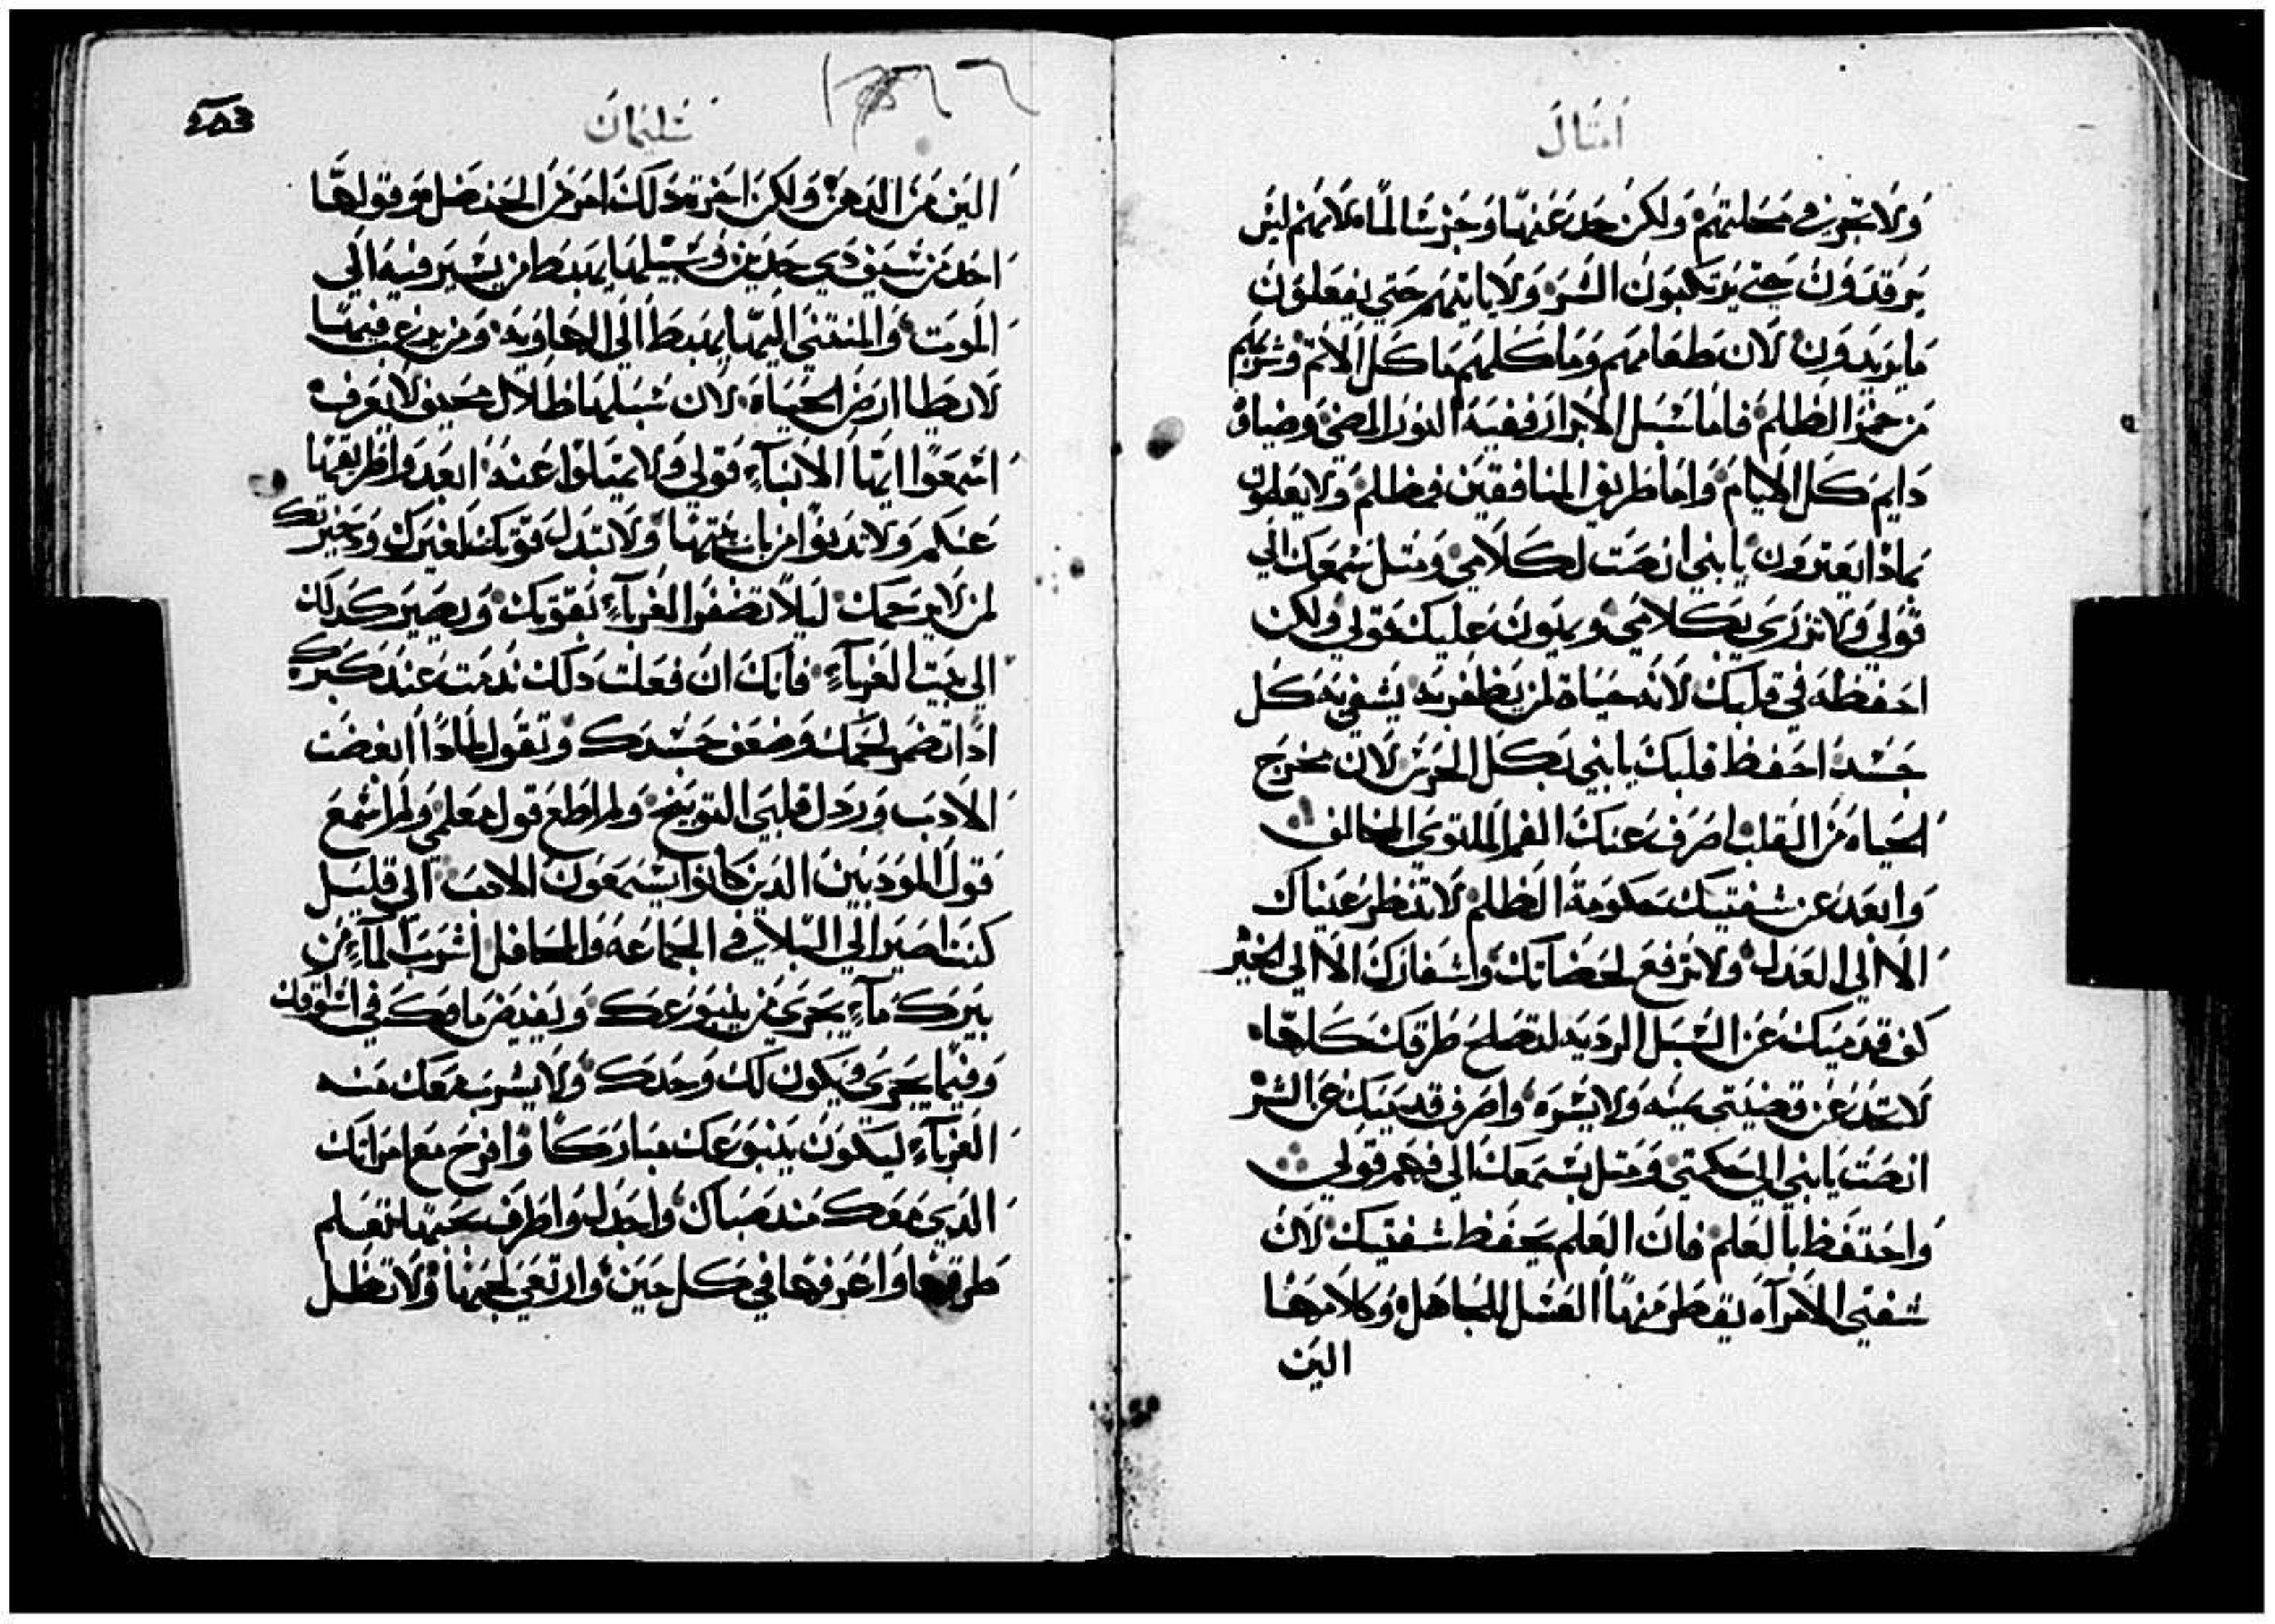 امثال
ولا تجوز في محلتهم ولكن حد عنها وجز سالما لانهم ليس
يرقدون حتي يرتكبون الشر ولا ياتيهم حتي يفعلون
ما يريدون لان طعامهم وماكلهم ماكل الاثم وشربهم
من خمر الظلم فاما سبل الابرار ففيه النور المضي وضياوه
دايم كل الايام واما طريق المنافقين في ظلم ولا يعلمون
بماذا يعترون يا بني انصت لكلامي وميل سمعك الي
قولي ولا تزري بكلامي ويهون عليك قولي ولكن
احفظه في قلبك لانه حياة لمن يظفر به يشفي به كل
جسد احفظ قلبك يا بني بكل الحرس لان مخرج
الحياه من القلب اصرف عنك الفم الملتوي المخالف
وابعد عن شفتيك حكومة الظلم لا تنظر عيناك
الا الي العدل ولا ترفع لحضاتك واشفارك الا الي الخير
كف قدميك عن السبل الرديه لتصلح طرقك كلها
لا تحد عن وصيتي يمينه ولا يسره واصرف قدميك عن الشر
انصت يا بني الي حكمتي وميل بسمعك الي فهم قولي
واحتفظ بالعلم فان العلم يحفظ شفتيك لان
شفتي الامرآه يقطر منها العسل للجاهل وكلامها
الين
سليمان
الين من الدهن ولكن اخرة ذلك امر من الحنضل وقولها
احد من سيف ذي حدين وسبيلها يهبط من يسير فيه الي
الموت والمنتهي اليها يهبط الي الهاويه ومن يرغب فيها
لا يطا ارض الحياه لان سبلها ظلال محيق لا يعرف
اسمعوا ايها الابنآء قولي ولا تميلوا عنه ابعدوا طريقها
عنكم ولا تدنوا من باب بيتها ولا تبدل قوتك لغيرك وذخيرتك
لمن لا يرحمك ليلا تضفر الغربآء بقوتك ويصير كدك
الي بيت الغربآء فانك ان فعلت ذلك ندمت عند كبرك
اذا تضمر لحمك وضعف جسدك وتقول لماذا ابغضت
الادب ورذل قلبي التوبيخ ولم اطع قول معلمي ولم اسمع
قول المودبين الذين كانوا يسمعون الادب الي قليل
كنت اصير الي البلايا في الجماعه والمحافل اشرب المآء من
بيرك مآء يجري من ينبوعك ويفيض ماوك في اسواقك
وفيما يجري ويكون لك وحدك ولا يشرب معك منه
الغربآء ليكون ينبوعك مباركا وافرح مع امراتك
الذي معك منذ صباك واجدل واطرف بحبها تعلم
طرقها واعرفها في كل حين وارتعي لحبها ولا تظل